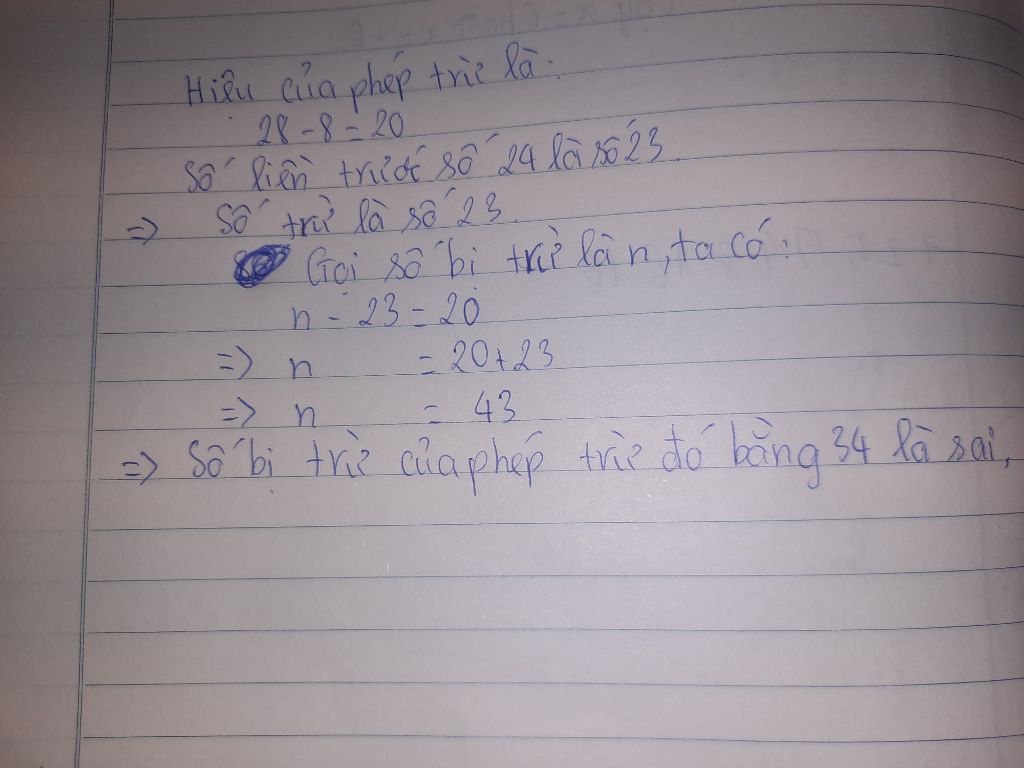 Hiệu của phép trừ là:
28 - 8 = 20
Số liền trước số 24 là số 23.
=> Số trừ là số 23.
Gọi số bị trừ là n, ta có:
n - 23 = 20
=> n = 20 + 23
=> n = 43
=> Số bị trừ của phép trừ đó bằng 34 là sai.